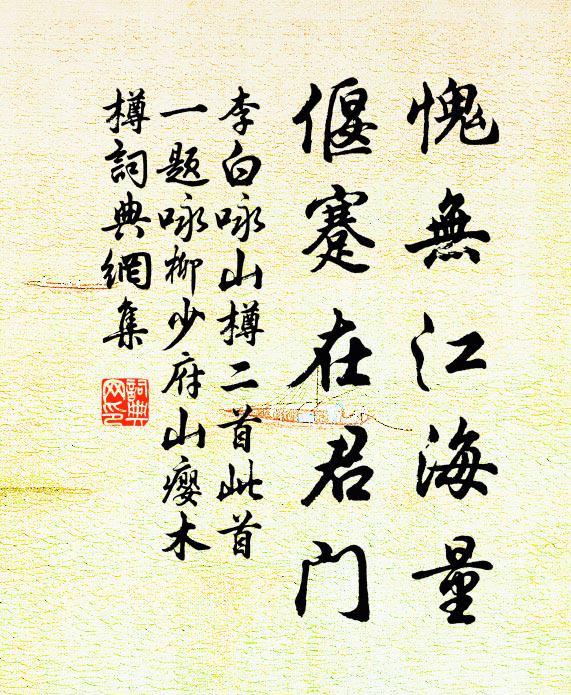 愧無江海量
偃蹇在君門
李白咏山樽二首此首
一题咏柳少府山瘿木
樽詞典網集
詞典网印